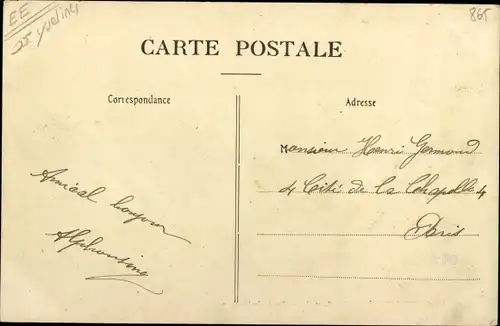 EE
25 Yvelines
865
CARTE POSTALE
Correspondance
Adresse
Amical bonjour
Alphonsine
Monsieur Henri Germond
4 Cité de la Chapelle 4
Paris